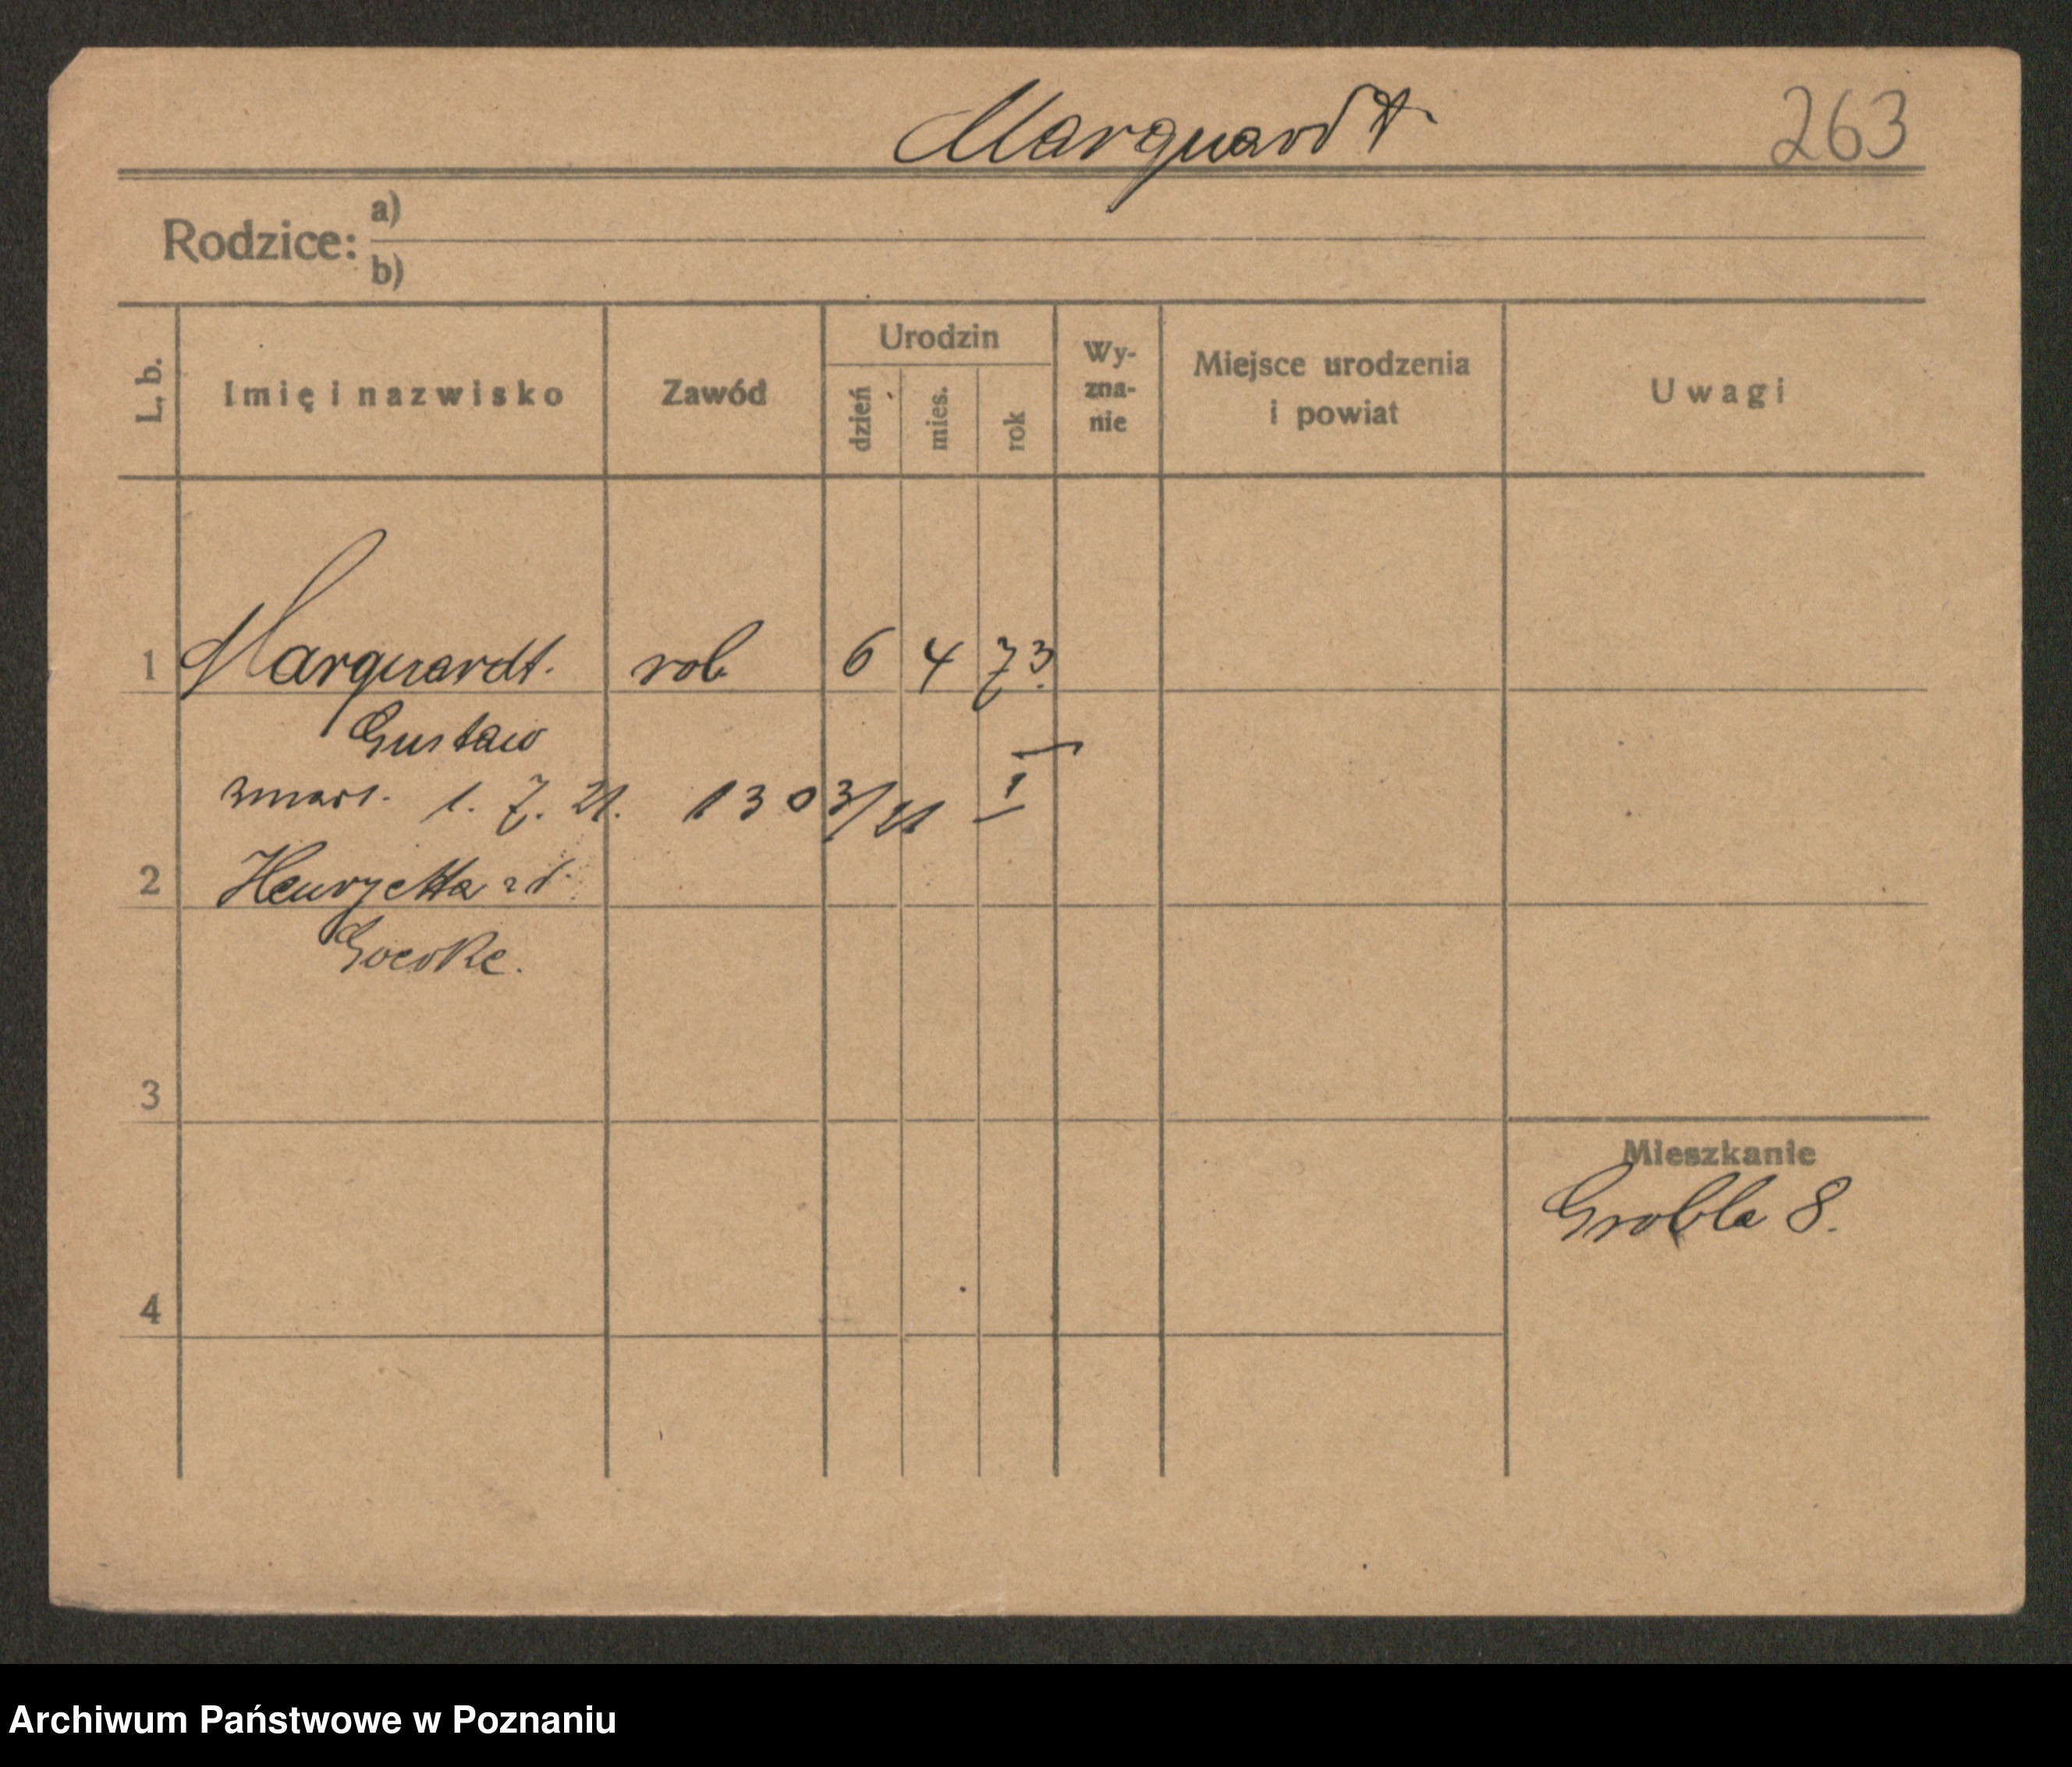 Marquardt 263
Rodzice: a)
b)
L. b. Imię i nazwisko Zawód Urodzin dzień mies. rok Wy-zna-nie Miejsce urodzenia i powiat Uwagi
1 Marquardt. rob 6 4 73.
Gustaw
zmarł. 1. 7. 21. 1303/21 I
2 Henryetta zd.
3
Mieszkanie
Grobla 8.
4
Archiwum Państwowe w Poznaniu